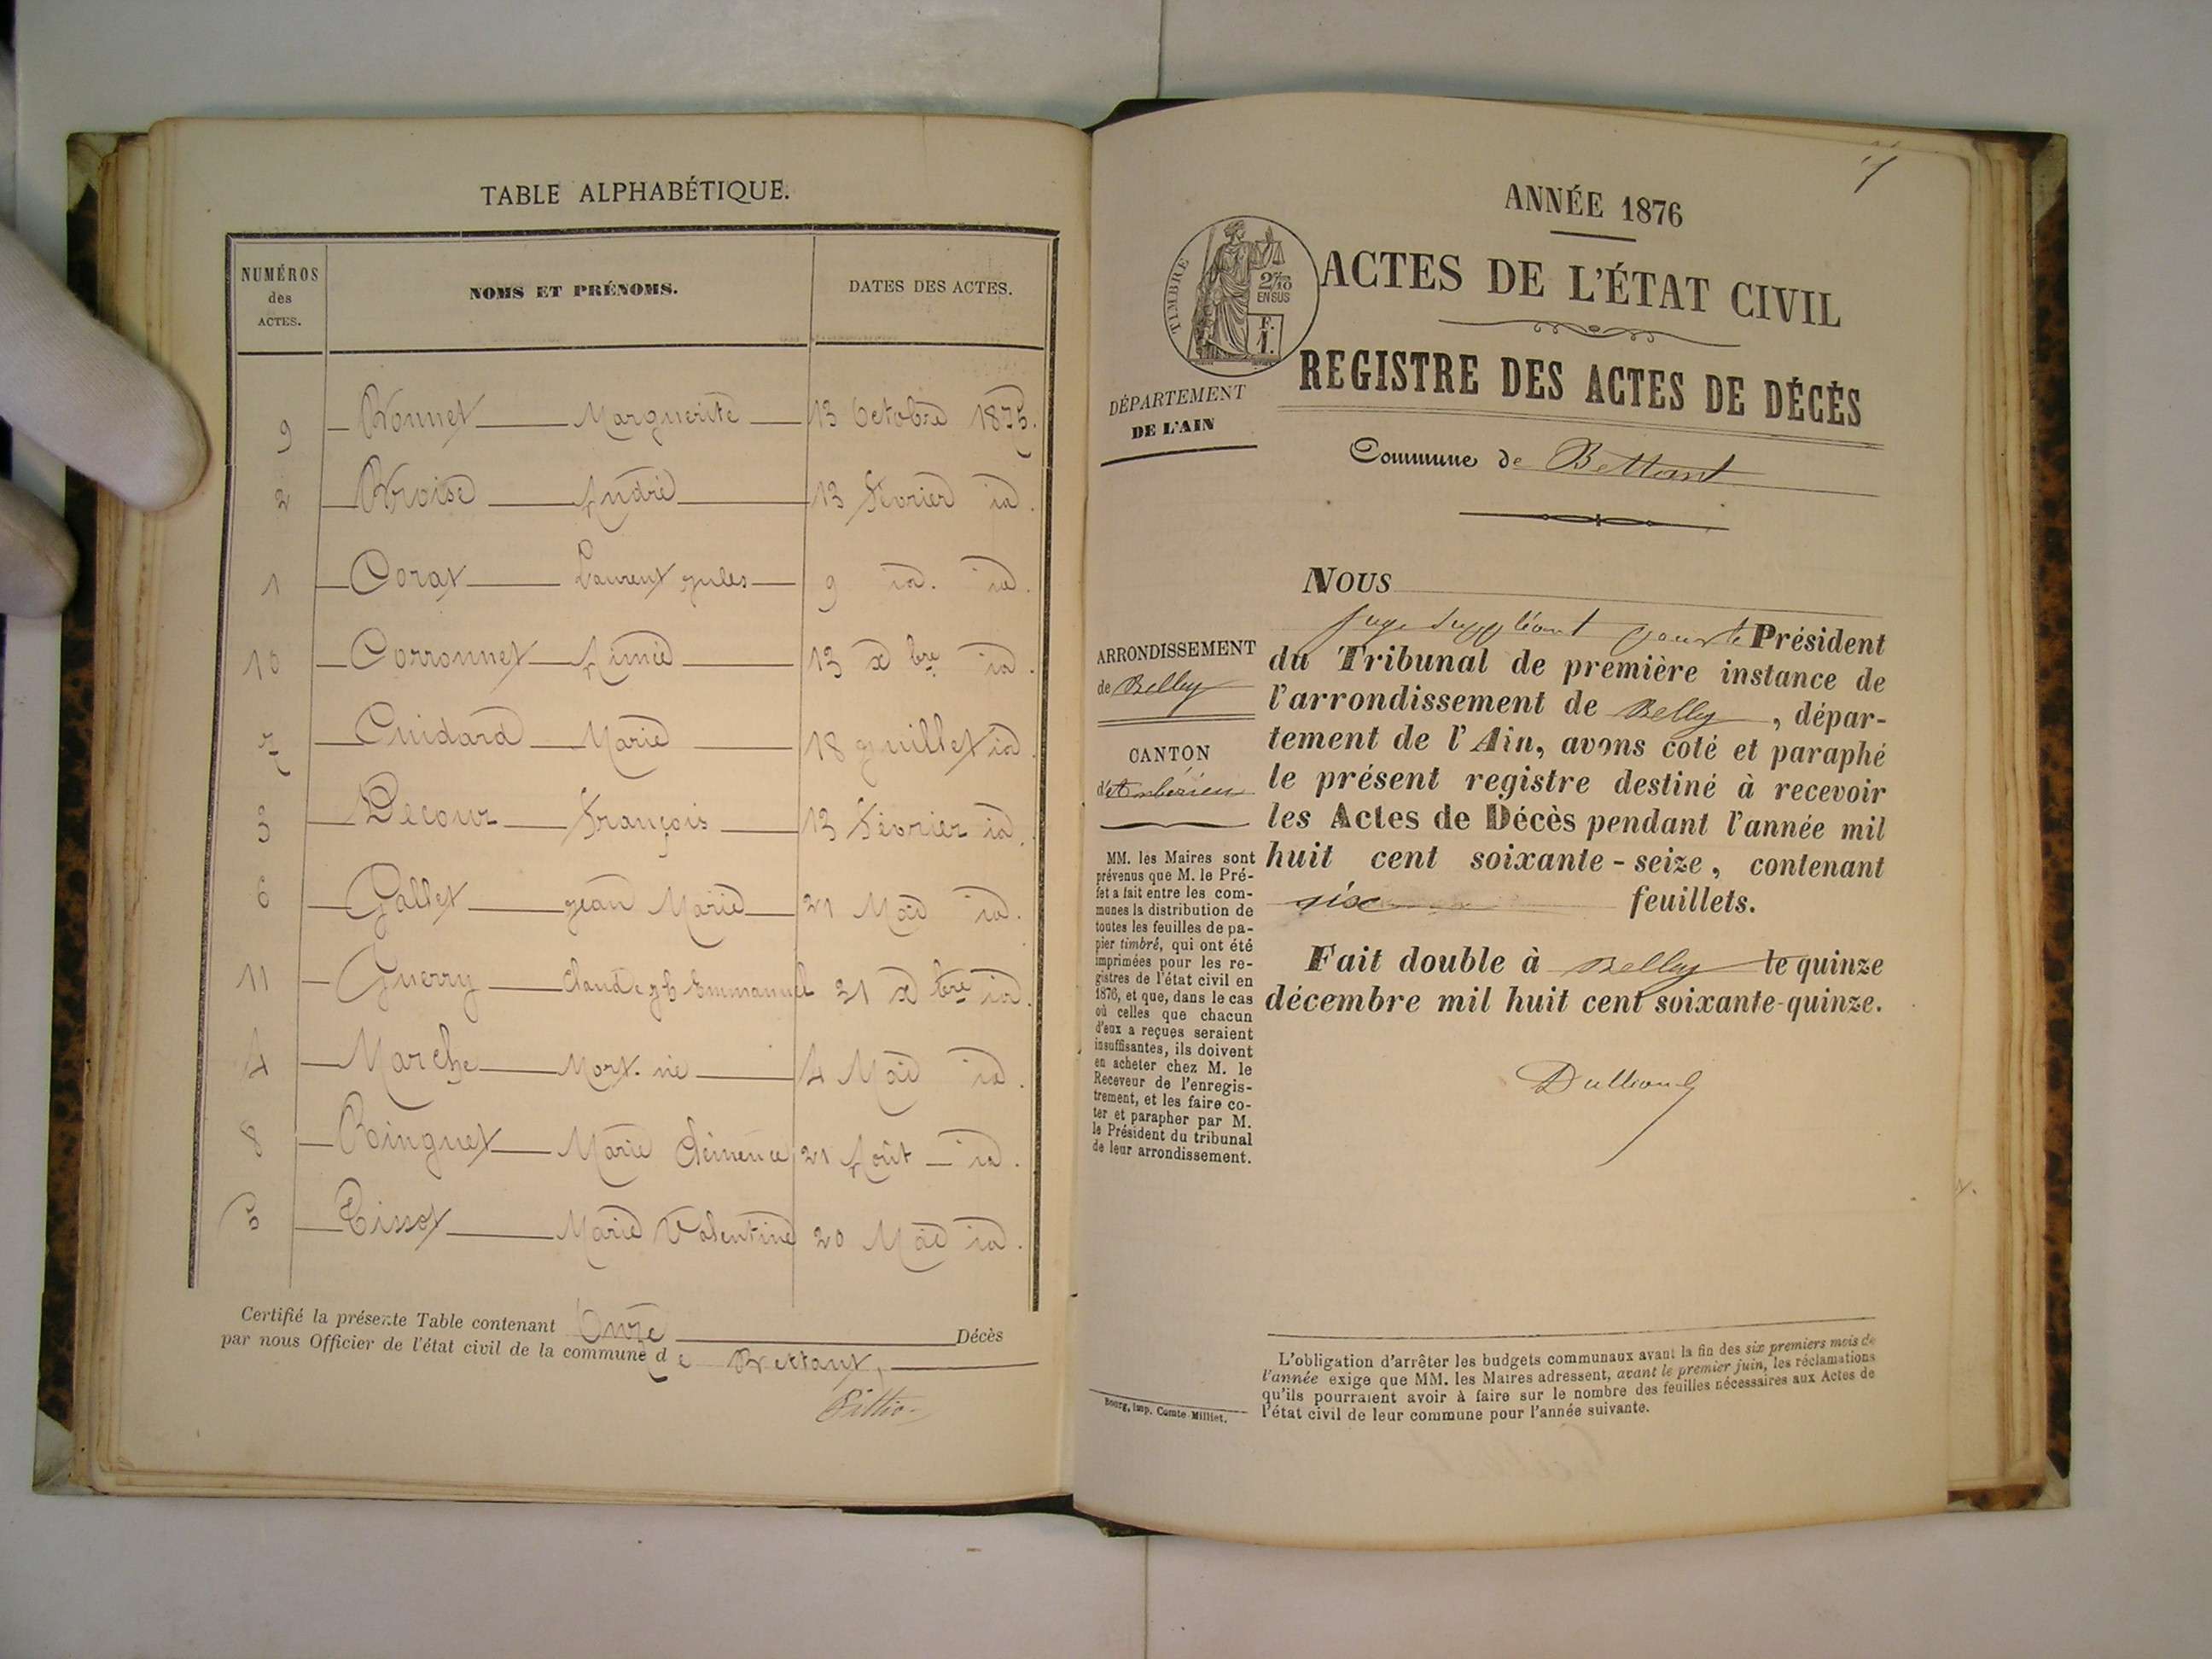 TABLE ALPHABÉTIQUE.
NUMÉROS des ACTES. NOMS ET PRÉNOMS. DATES DES ACTES.
9 Bonnet Marguerite 13 Octobre 1875.
2 Broise André 13 Février id.
1 Corat Laurent Jules 9 id. id.
10 Corronnet Aimée 13 Xbre id.
7 Cuidard Marie 18 Juillet id.
3 Decour François 13 Février id.
6 Gallet Jean Marie 21 Mai id.
11 Guerry Claude Jh Emmanuel 21 Xbre id.
4 Marche Mort-né 4 Mai id.
8 Ringuet Marie Clémence 21 Août id.
5 Tissot Marie Valentine 20 Mai id.
Certifié la présente Table contenant Onze Décès
par nous Officier de l'état civil de la commune de Bettant,
ANNÉE 1876
TIMBRE
2/10
EN SUS
F.
1.
ACTES DE L'ÉTAT CIVIL
REGISTRE DES ACTES DE DÉCÈS
DÉPARTEMENT
DE L'AIN
Commune de Bettant
ARRONDISSEMENT
de Belley
CANTON
d'Ambérieu
MM. les Maires sont
prévenus que M. le Pré-
fet a fait entre les com-
munes la distribution de
toutes les feuilles de pa-
pier timbré, qui ont été
imprimées pour les re-
gistres de l'état civil en
1876, et que, dans le cas
où celles que chacun
d'eux a reçues seraient
insuffisantes, ils doivent
en acheter chez M. le
Receveur de l'enregis-
trement, et les faire co-
ter et parapher par M.
le Président du tribunal
de leur arrondissement.
NOUS
Juge Suppléant pour le Président
du Tribunal de première instance de
l'arrondissement de Belley, dépar-
tement de l'Ain, avons coté et paraphé
le présent registre destiné à recevoir
les Actes de Décès pendant l'année mil
huit cent soixante-seize, contenant
six feuillets.
Fait double à Belley le quinze
décembre mil huit cent soixante-quinze.
L'obligation d'arrêter les budgets communaux avant la fin des six premiers mois de
l'année exige que MM. les Maires adressent, avant le premier juin, les réclamations
qu'ils pourraient avoir à faire sur le nombre des feuilles nécessaires aux Actes de
l'état civil de leur commune pour l'année suivante.
Bourg, imp. Comte-Milliet.